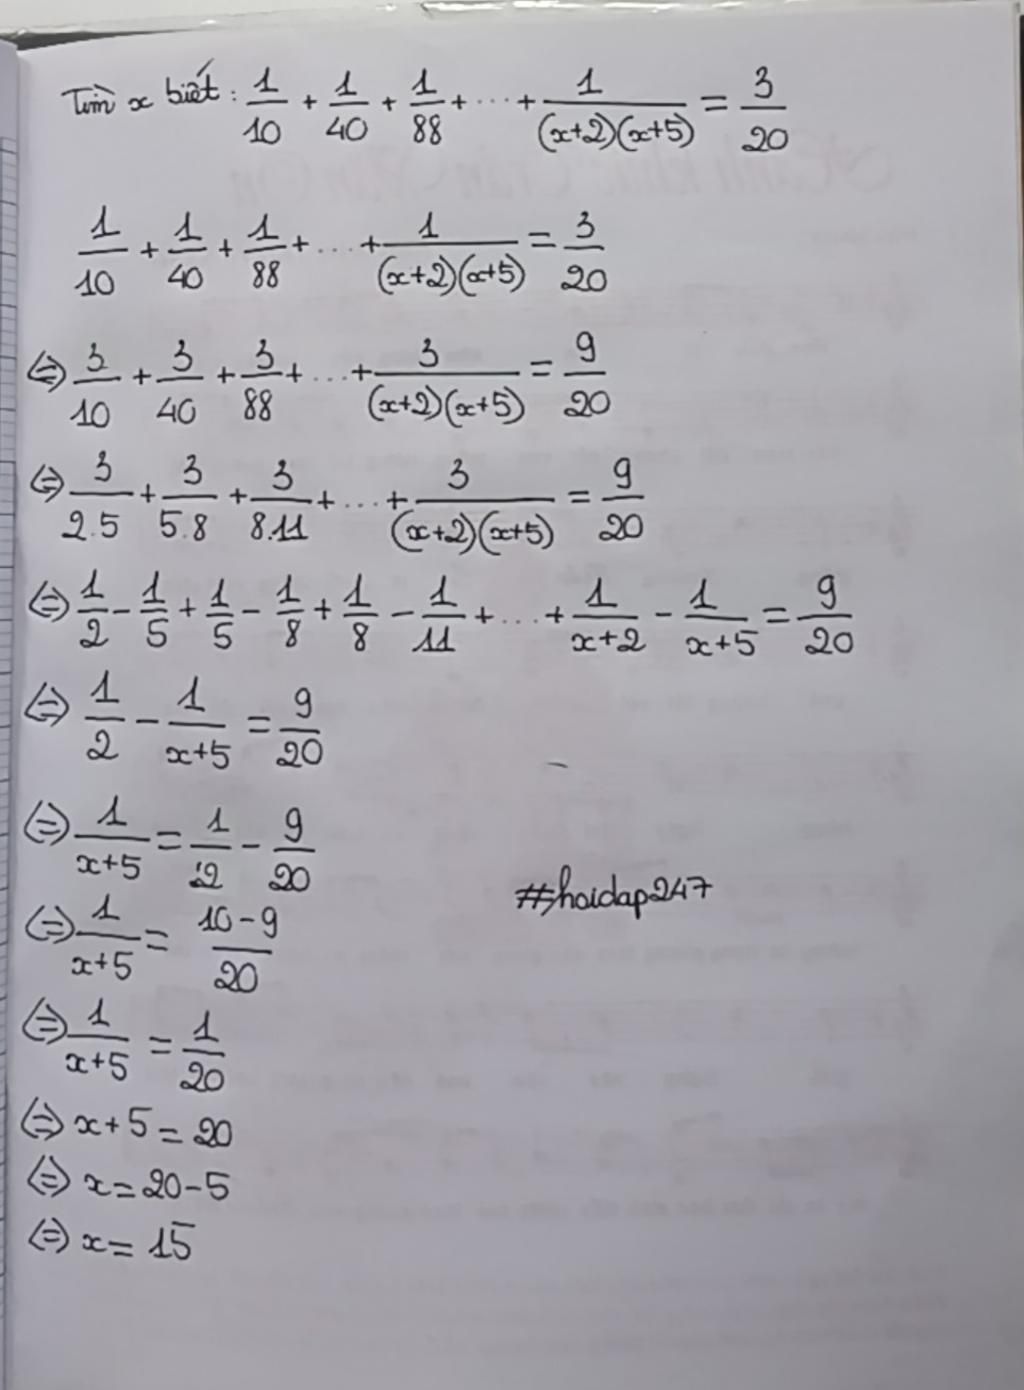 Tìm x biết: 1/10 + 1/40 + 1/88 + ... + 1/(x+2)(x+5) = 3/20
1/10 + 1/40 + 1/88 + ... + 1/(x+2)(x+5) = 3/20
<=> 3/10 + 3/40 + 3/88 + ... + 3/(x+2)(x+5) = 9/20
<=> 3/2.5 + 3/5.8 + 3/8.11 + ... + 3/(x+2)(x+5) = 9/20
<=> 1/2 - 1/5 + 1/5 - 1/8 + 1/8 - 1/11 + ... + 1/x+2 - 1/x+5 = 9/20
<=> 1/2 - 1/x+5 = 9/20
<=> 1/x+5 = 1/2 - 9/20
#hoidap247
<=> 1/x+5 = 10-9/20
<=> 1/x+5 = 1/20
<=> x+5 = 20
<=> x = 20-5
<=> x = 15